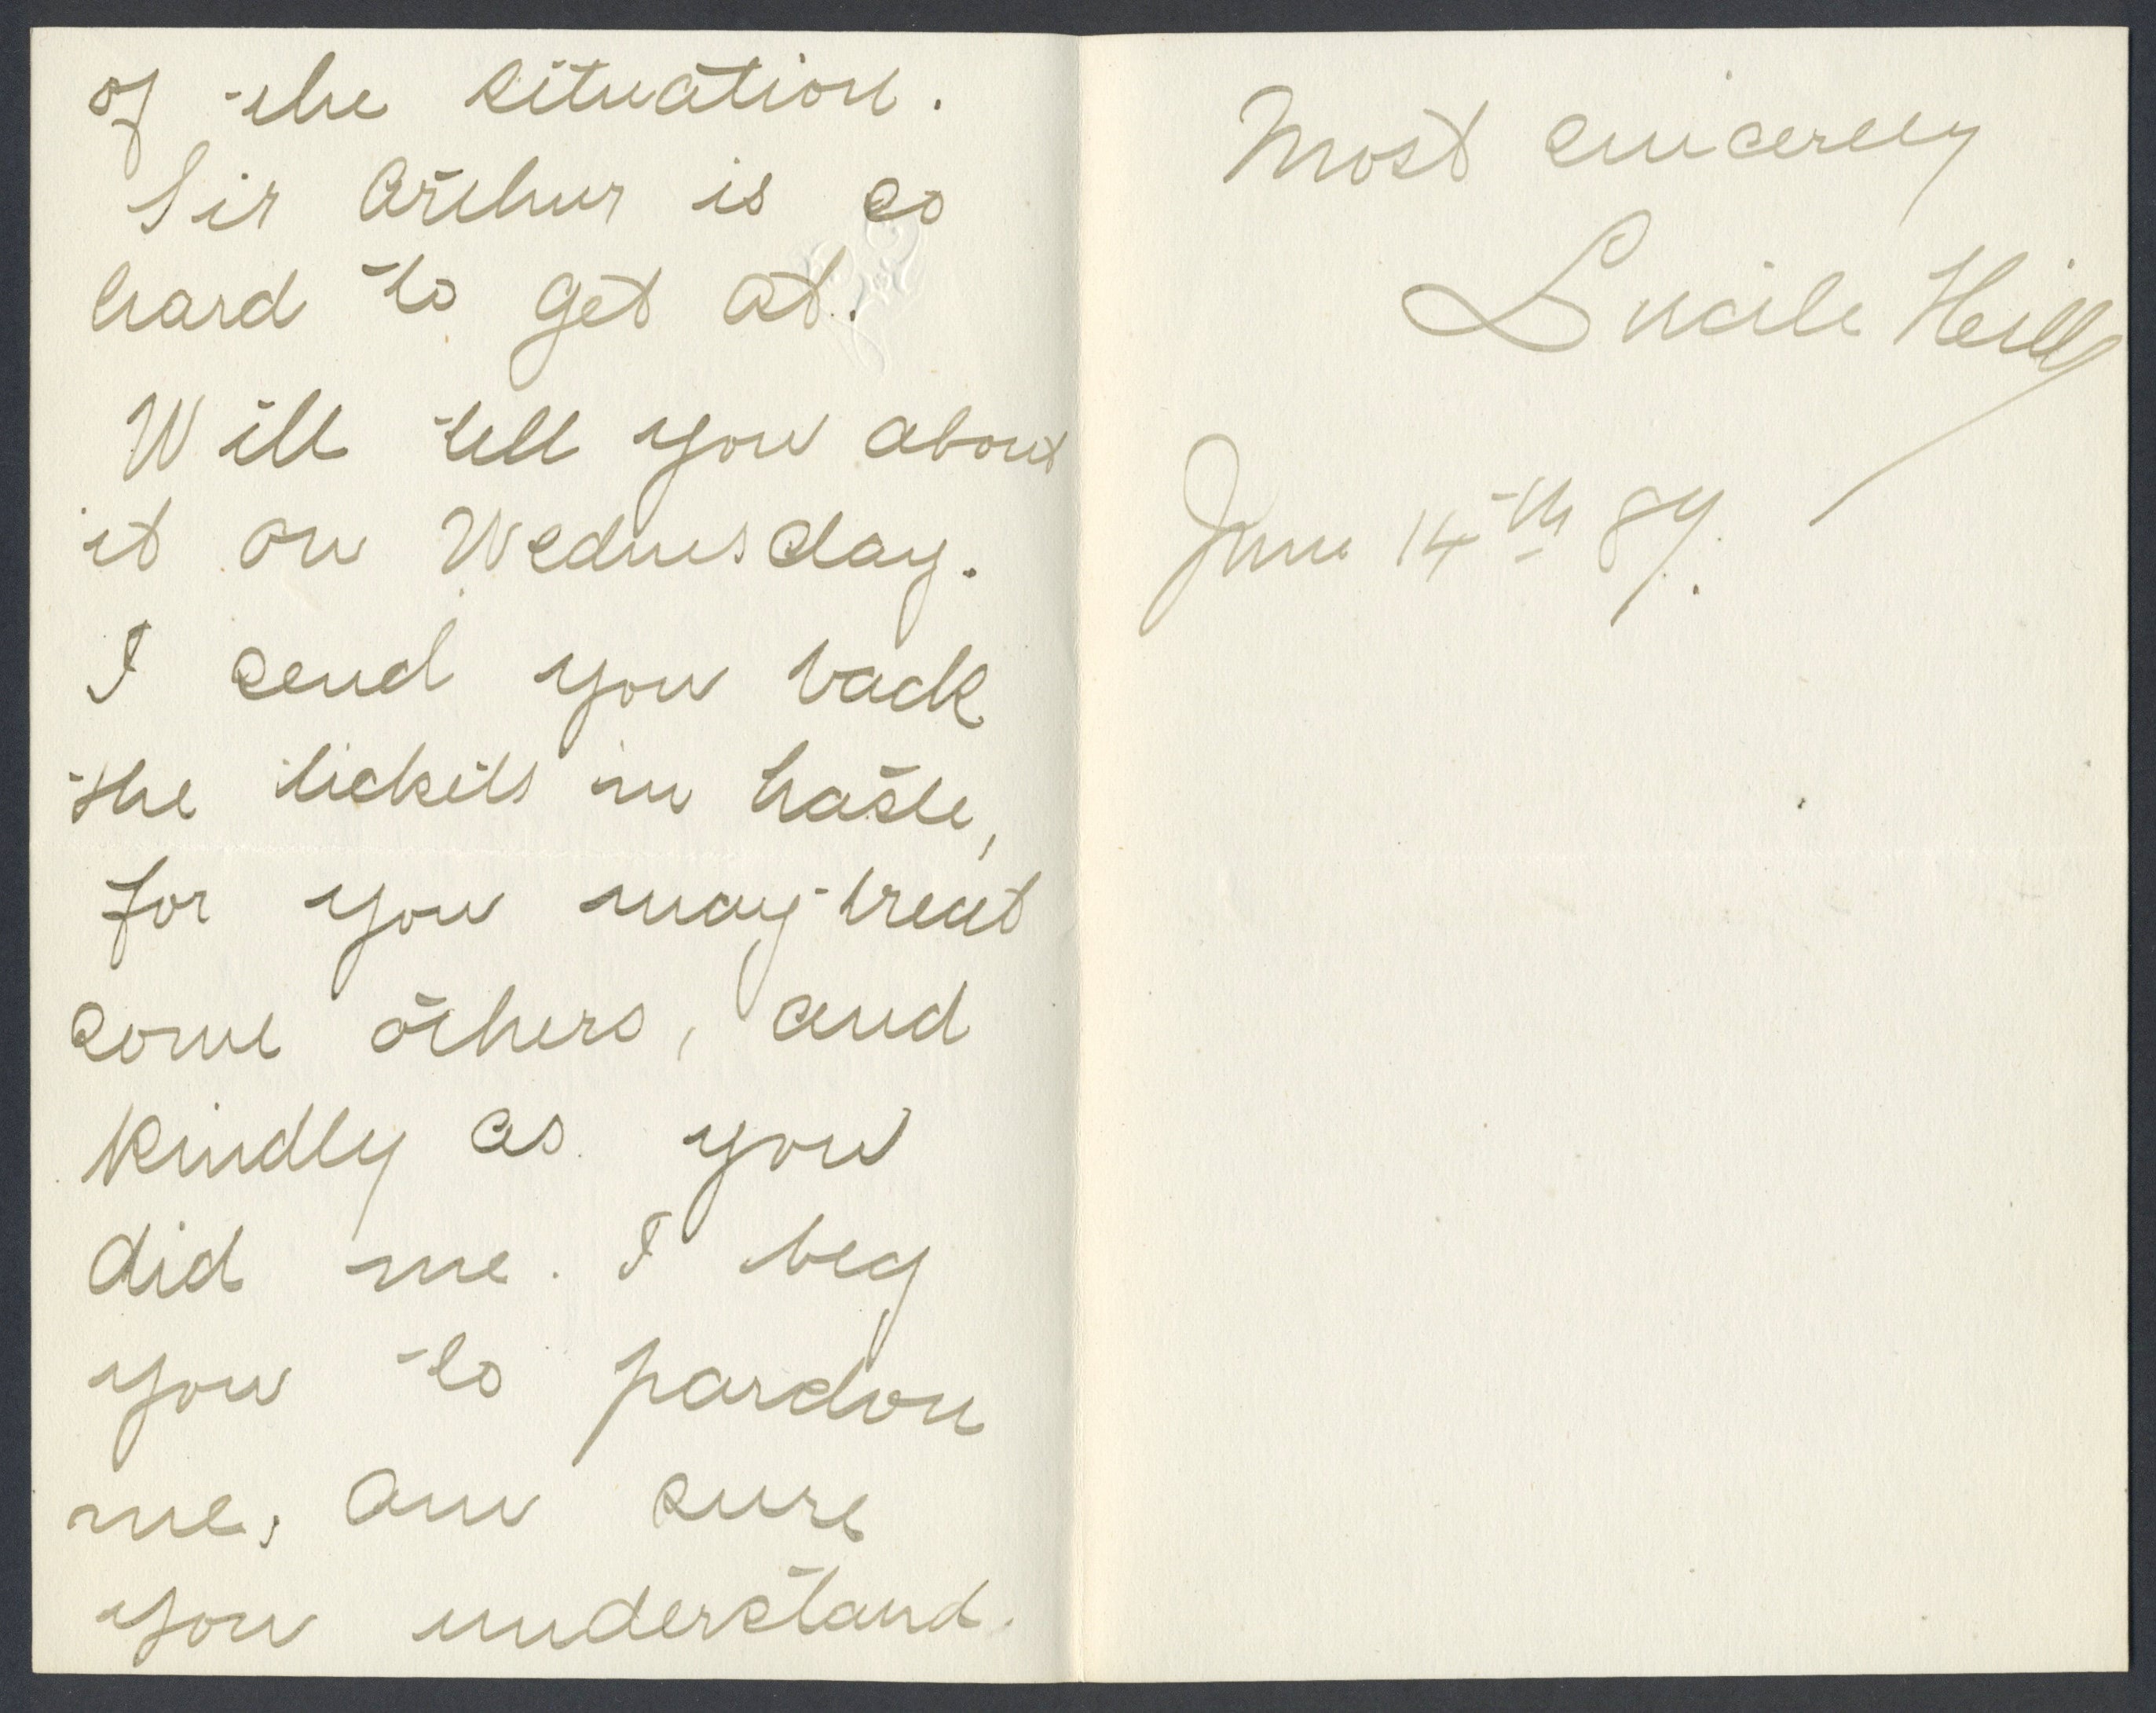 of the situation.
Sir Arthur is so
hard to get at.
Will tell you about
it on Wednesday.
I send you back
the tickets in haste,
for you may treat
some others, and
kindly as you
did me. I beg
you to pardon
me, am sure
you understand.
Most sincerely
Lucile Hill
June 14th 89.